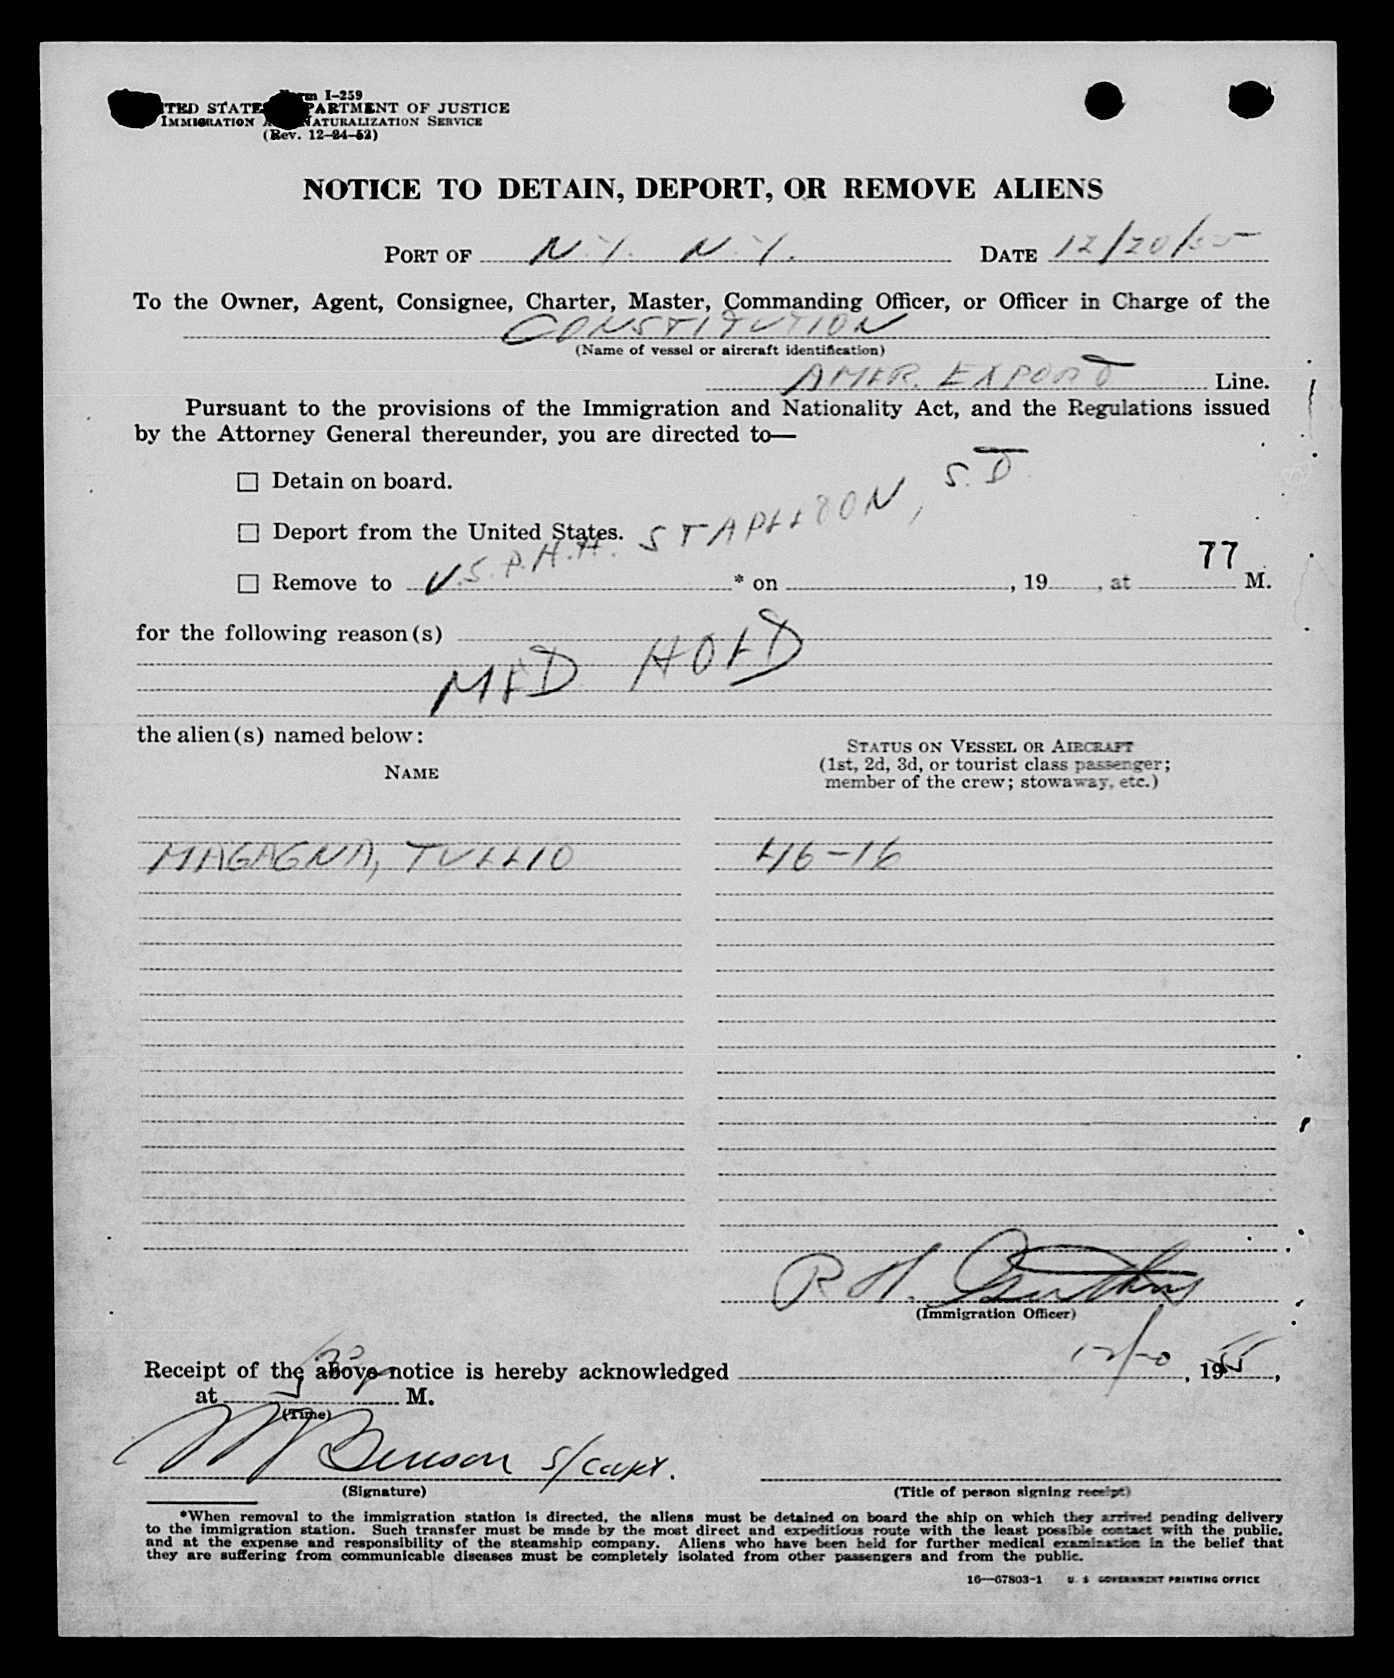 Form I-259
UNITED STATES DEPARTMENT OF JUSTICE
IMMIGRATION AND NATURALIZATION SERVICE
(Rev. 12-24-52)
NOTICE TO DETAIN, DEPORT, OR REMOVE ALIENS
PORT OF N.Y. N.Y. DATE 12/20/55
To the Owner, Agent, Consignee, Charter, Master, Commanding Officer, or Officer in Charge of the
CONSTITUTION
(Name of vessel or aircraft identification)
AMER. EXPORT Line.
Pursuant to the provisions of the Immigration and Nationality Act, and the Regulations issued
by the Attorney General thereunder, you are directed to—
☐ Detain on board.
☐ Deport from the United States.
☐ Remove to U.S.P.H.H. STAPLETON, S.I. * on , 19 , at 77 M.
for the following reason(s)
MED HOLD
the alien(s) named below:
NAME
STATUS ON VESSEL OR AIRCRAFT
(1st, 2d, 3d, or tourist class passenger;
member of the crew; stowaway, etc.)
MAGAGNA, TULLIO 416-16
R H.
(Immigration Officer)
Receipt of the above notice is hereby acknowledged 12/20, 1955,
at M.
(Time)
Benson s/capt.
(Signature)
(Title of person signing receipt)
*When removal to the immigration station is directed, the aliens must be detained on board the ship on which they arrived pending delivery
to the immigration station. Such transfer must be made by the most direct and expeditious route with the least possible contact with the public,
and at the expense and responsibility of the steamship company. Aliens who have been held for further medical examination in the belief that
they are suffering from communicable diseases must be completely isolated from other passengers and from the public.
16—67803-1 U. S. GOVERNMENT PRINTING OFFICE